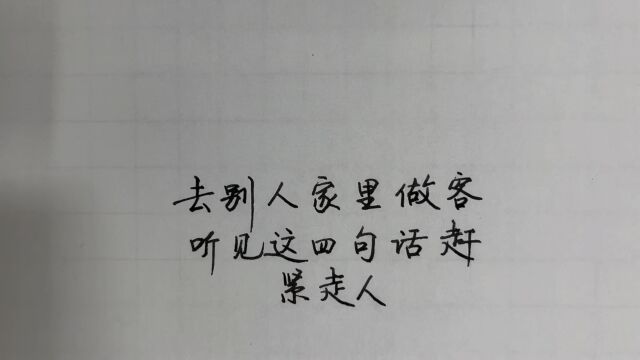 去别人家里做客
听见这四句话赶
紧走人